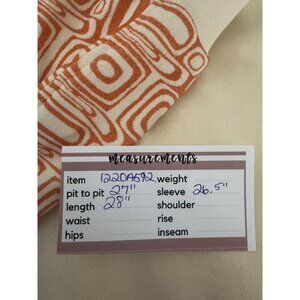 measurements
item 1220A592 weight
pit to pit 27" sleeve 26.5"
length 28" shoulder
waist rise
hips inseam